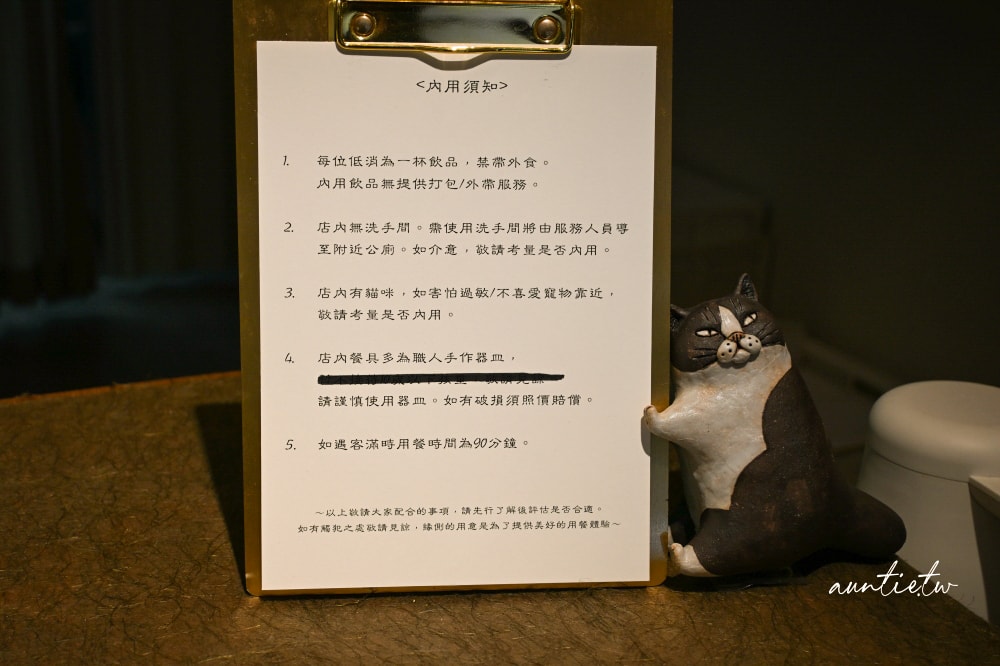 <內用須知>
1. 每位低消為一杯飲品，禁帶外食。
內用飲品無提供打包/外帶服務。
2. 店內無洗手間。需使用洗手間將由服務人員導
至附近公廁。如介意，敬請考量是否內用。
3. 店內有貓咪，如害怕過敏/不喜愛寵物靠近，
敬請考量是否內用。
4. 店內餐具多為職人手作器皿，
請謹慎使用器皿。如有破損須照價賠償。
5. 如遇客滿時用餐時間為90分鐘。
～以上敬請大家配合的事項，請先行了解後評估是否合適。
如有觸犯之處敬請見諒，緣側的用意是為了提供美好的用餐體驗～
auntie.tw